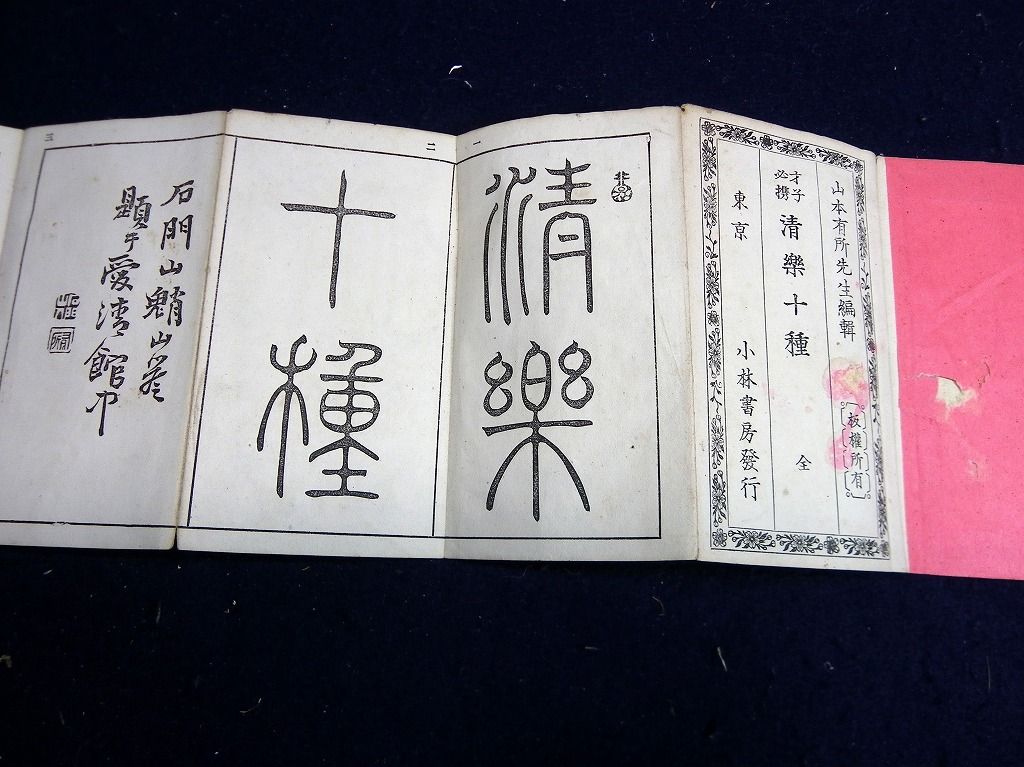 山本有所先生編輯
板權所有
才子必携
清樂十種
全
東京
小林書房發行
一
清樂
二
十種
三
石門山
題于愛清館中